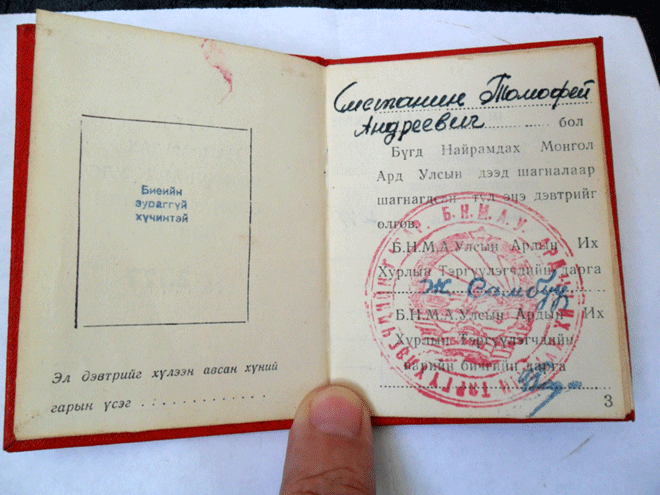 Биеийн
зураггүй
хүчинтэй
Эл дэвтрийг хүлээн авсан хүний
гарын үсэг . . . . . . . . . . . . .
Сметанин Томофей
Андреевич бол
Бүгд Найрамдах Монгол
Ард Улсын дээд шагналаар
шагнагдсан тул энэ дэвтрийг
олгов.
Б.Н.М.А.Улсын Ардын Их
Хурлын Тэргүүлэгчдийн дарга
Ж. Самбуу
Б.Н.М.А.Улсын Ардын Их
Хурлын Тэргүүлэгчдийн
нарийн бичгийн дарга
3
Б.Н.М.А.У. АРД ИХ